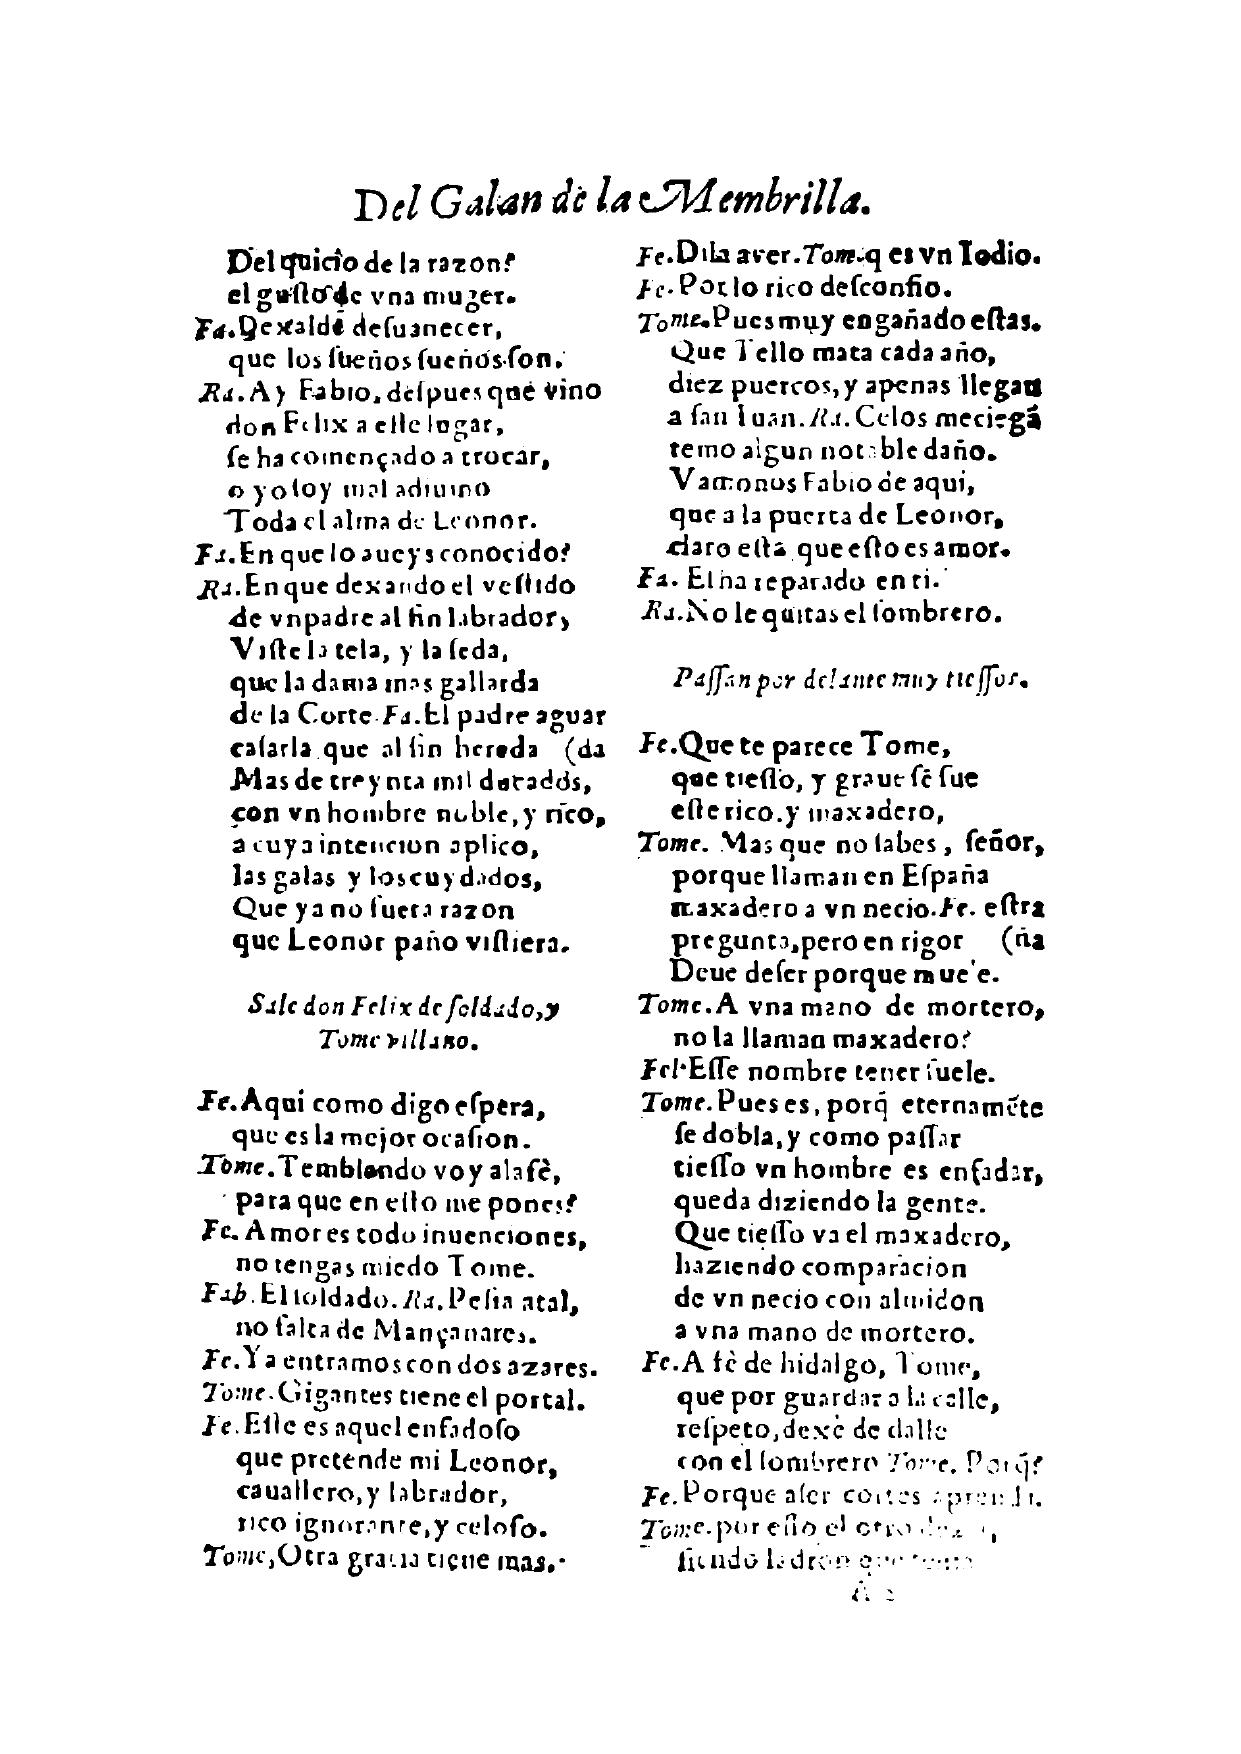 Del Galan de la Membrilla.
Del quicio de la razon?
el gusto de vna muger.
Fa. Dexalde desuanecer,
que los sueños sueños son.
Ra. Ay Fabio, despues que vino
don Felix a este lugar,
se ha començado a trocar,
o yo soy mal adiuino
Toda el alma de Leonor.
Fa. En que lo aueys conocido?
Ra. En que dexando el vestido
de vn padre al fin labrador,
Viste la tela, y la seda,
que la dama mas gallarda
de la Corte. Fa. El padre aguar
casarla que al fin hereda (da
Mas de treynta mil ducados,
con vn hombre noble, y rico,
a cuya intencion aplico,
las galas y los cuydados,
Que ya no fuera razon
que Leonor paño vistiera.
Sale don Felix de soldado, y
Tome villano.
Fe. Aqui como digo espera,
que es la mejor ocasion.
Tome. Temblando voy a la fè,
para que en esto me pones?
Fe. Amor es todo inuenciones,
no tengas miedo Tome.
Fab. El soldado. Ra. Pesia atal,
no falta de Mançanares.
Fe. Ya entramos con dos azares.
Tome. Gigantes tiene el portal.
Fe. Este es aquel enfadoso
que pretende mi Leonor,
cauallero, y labrador,
rico ignorante, y celoso.
Tome, Otra gracia tiene mas.
Fe. Dila aver. Tom. q es vn Iodio.
Fe. Por lo rico desconfio.
Tome. Pues muy engañado estas.
Que Tello mata cada año,
diez puercos, y apenas llegan
a san Iuan. Ra. Celos me ciegã
temo algun notable daño.
Vamonos Fabio de aqui,
que a la puerta de Leonor,
claro està que esto es amor.
Fa. El ha reparado en ti.
Ra. No le quitas el sombrero.
Passan por delante muy tiessos.
Fe. Que te parece Tome,
que tiesso, y graue se fue
este rico. y maxadero,
Tome. Mas que no sabes, señor,
porque llaman en España
maxadero a vn necio. Fe. estra
pregunta, pero en rigor (ña
Deue de ser porque muele.
Tome. A vna mano de mortero,
no la llaman maxadero?
Fel. Esse nombre tener suele.
Tome. Pues es, porq̃ eternamẽte
se dobla, y como passar
tiesso vn hombre es enfadar,
queda diziendo la gente.
Que tiesso va el maxadero,
haziendo comparacion
de vn necio con almidon
a vna mano de mortero.
Fe. A fè de hidalgo, Tome,
que por guardar a la calle,
respeto, dexè de dalle
con el sombrero Tome. Porq̃?
Fe. Porque a ser cortes aprenda.
Tome. por esso el otro
siendo ladron que